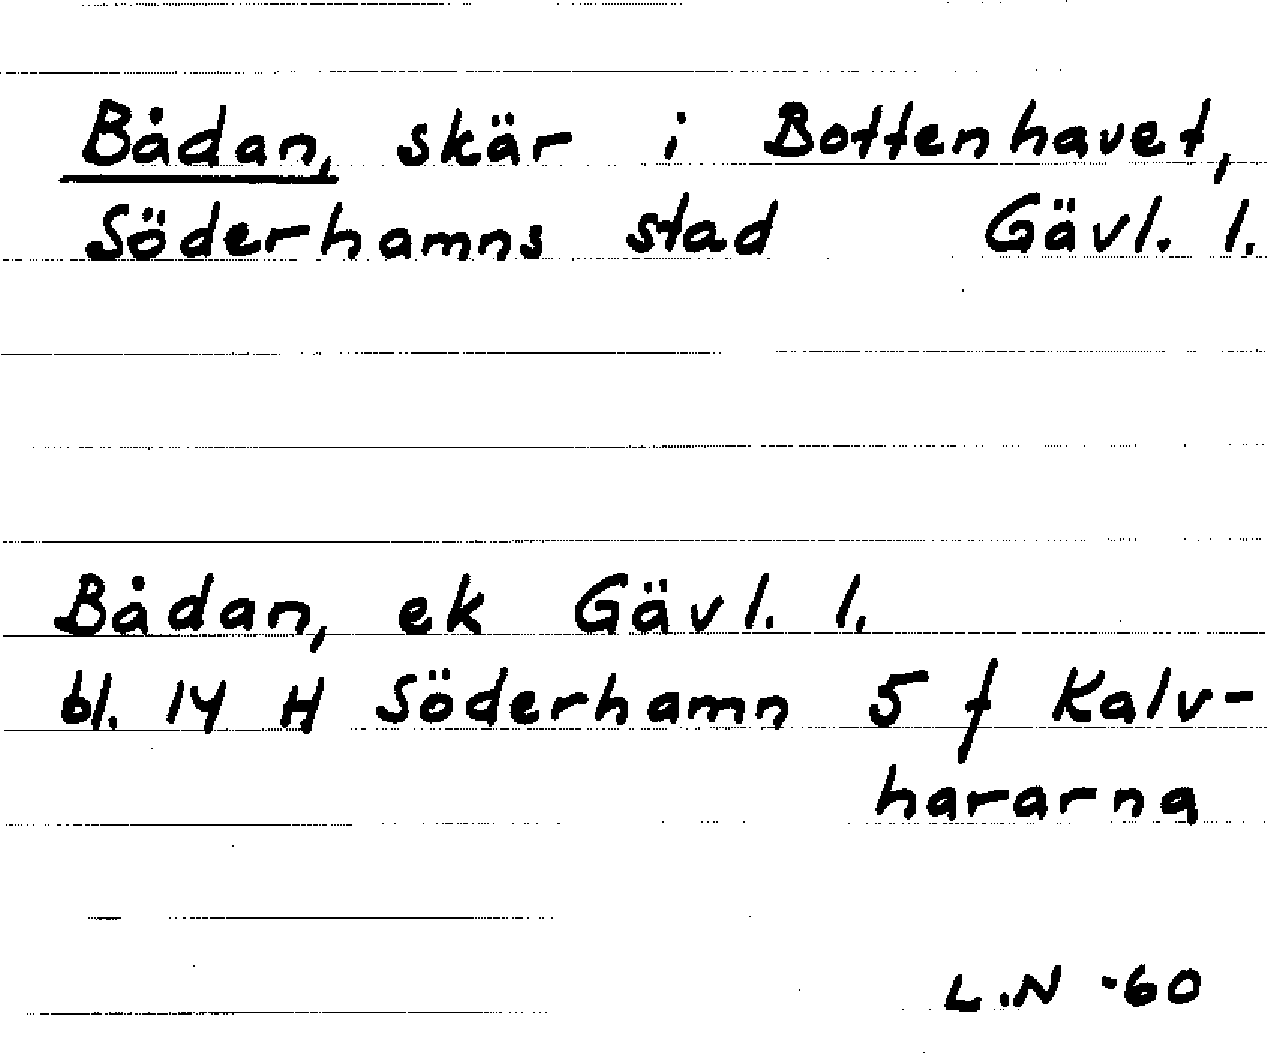 Bådan, skär i Bottenhavet,
Söderhamns stad Gävl. l.
Bådan, ek Gävl. l.
bl. 14 H Söderhamn 5 f Kalv-
hararna
L.N -60